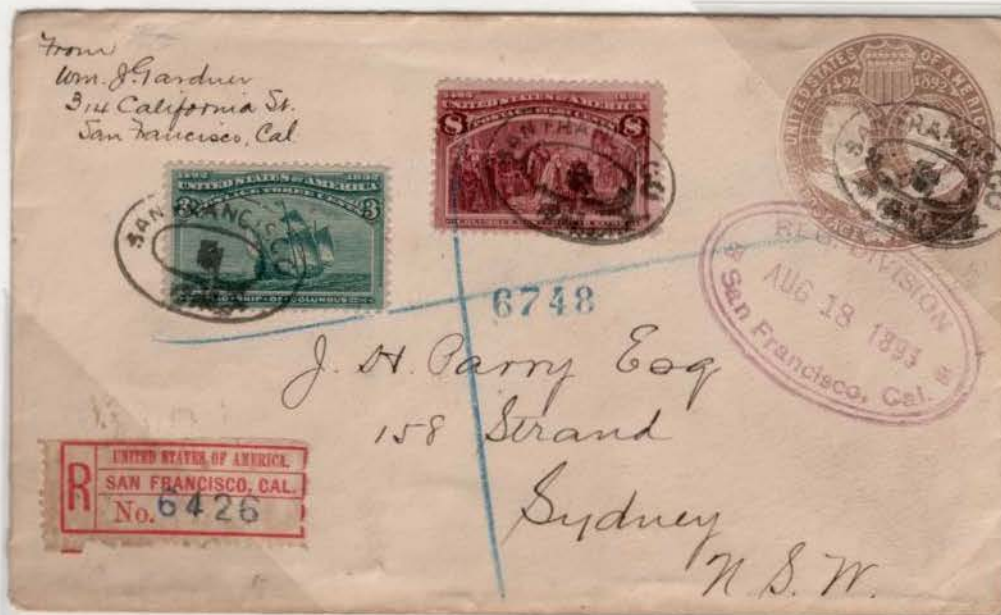 From
Wm. J. Gardner
314 California St.
San Francisco, Cal
1492 1892
UNITED STATES OF AMERICA
POSTAGE THREE CENTS
3 3
SHIP OF COLUMBUS
SAN FRANCISCO
1492 1892
UNITED STATES OF AMERICA
8 POSTAGE EIGHT CENTS 8
SAN FRANCISCO
UNITED STATES OF AMERICA
1492 1892
SAN FRANCISCO
REG. DIVISION
AUG 18 1893
San Francisco, Cal.
6748
J. H. Parry Esq
158 Strand
Sydney
N. S. W.
R
UNITED STATES OF AMERICA.
SAN FRANCISCO, CAL.
No. 6426